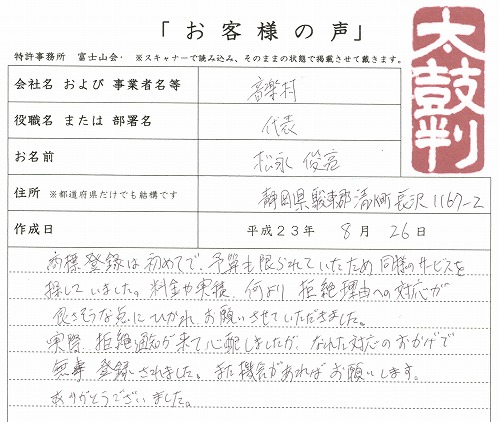 「お客様の声」
特許事務所 富士山会・ ※スキャナーで読み込み、そのままの状態で掲載させて戴きます。
太鼓判
会社名 および 事業者名等 音楽村
役職名 または 部署名 代表
お名前 松永 俊亮
住所 ※都道府県だけでも結構です 静岡県駿東郡清水町長沢1167-2
作成日 平成23年 8月 26日
商標登録は初めてで、予算も限られていたため同様のサービスを
探していました。料金や実積、何より拒絶理由への対応が
良さそうな点にひかれ、お願いさせていただきました。
実際、拒絶通知が来て心配しましたが、なれた対応のおかげで
無事 登録されました。また機会があればお願いします。
ありがとうございました。